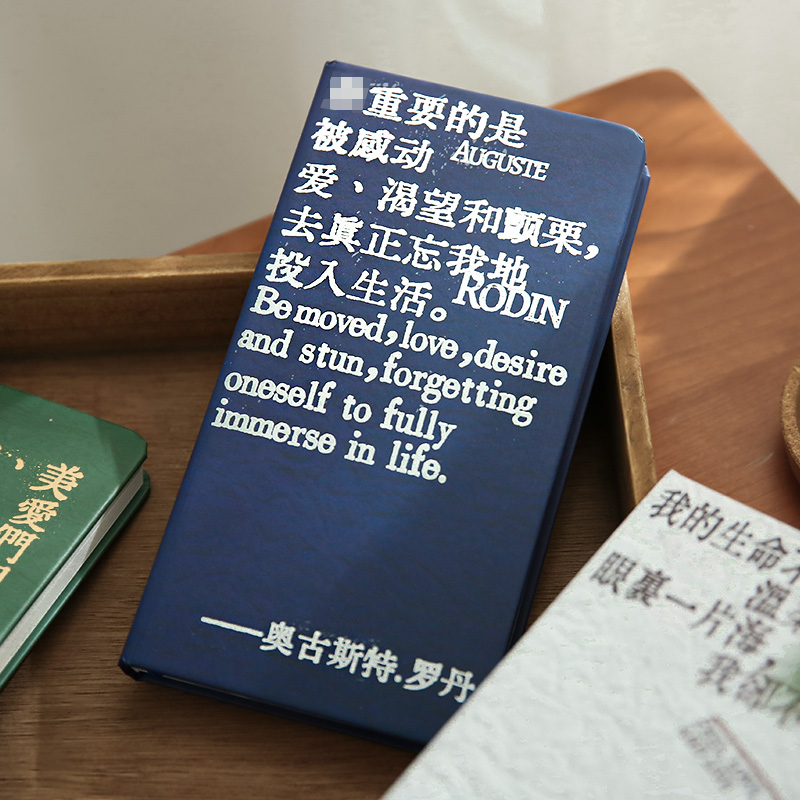 重要的是
被感动 AUGUSTE
爱、渴望和颤栗，
去真正忘我地
投入生活。RODIN
Be moved,love,desire
and stun,forgetting
oneself to fully
immerse in life.
——奥古斯特.罗丹
美愛們
我的生命不
溫
眼裏一片海
我卻不